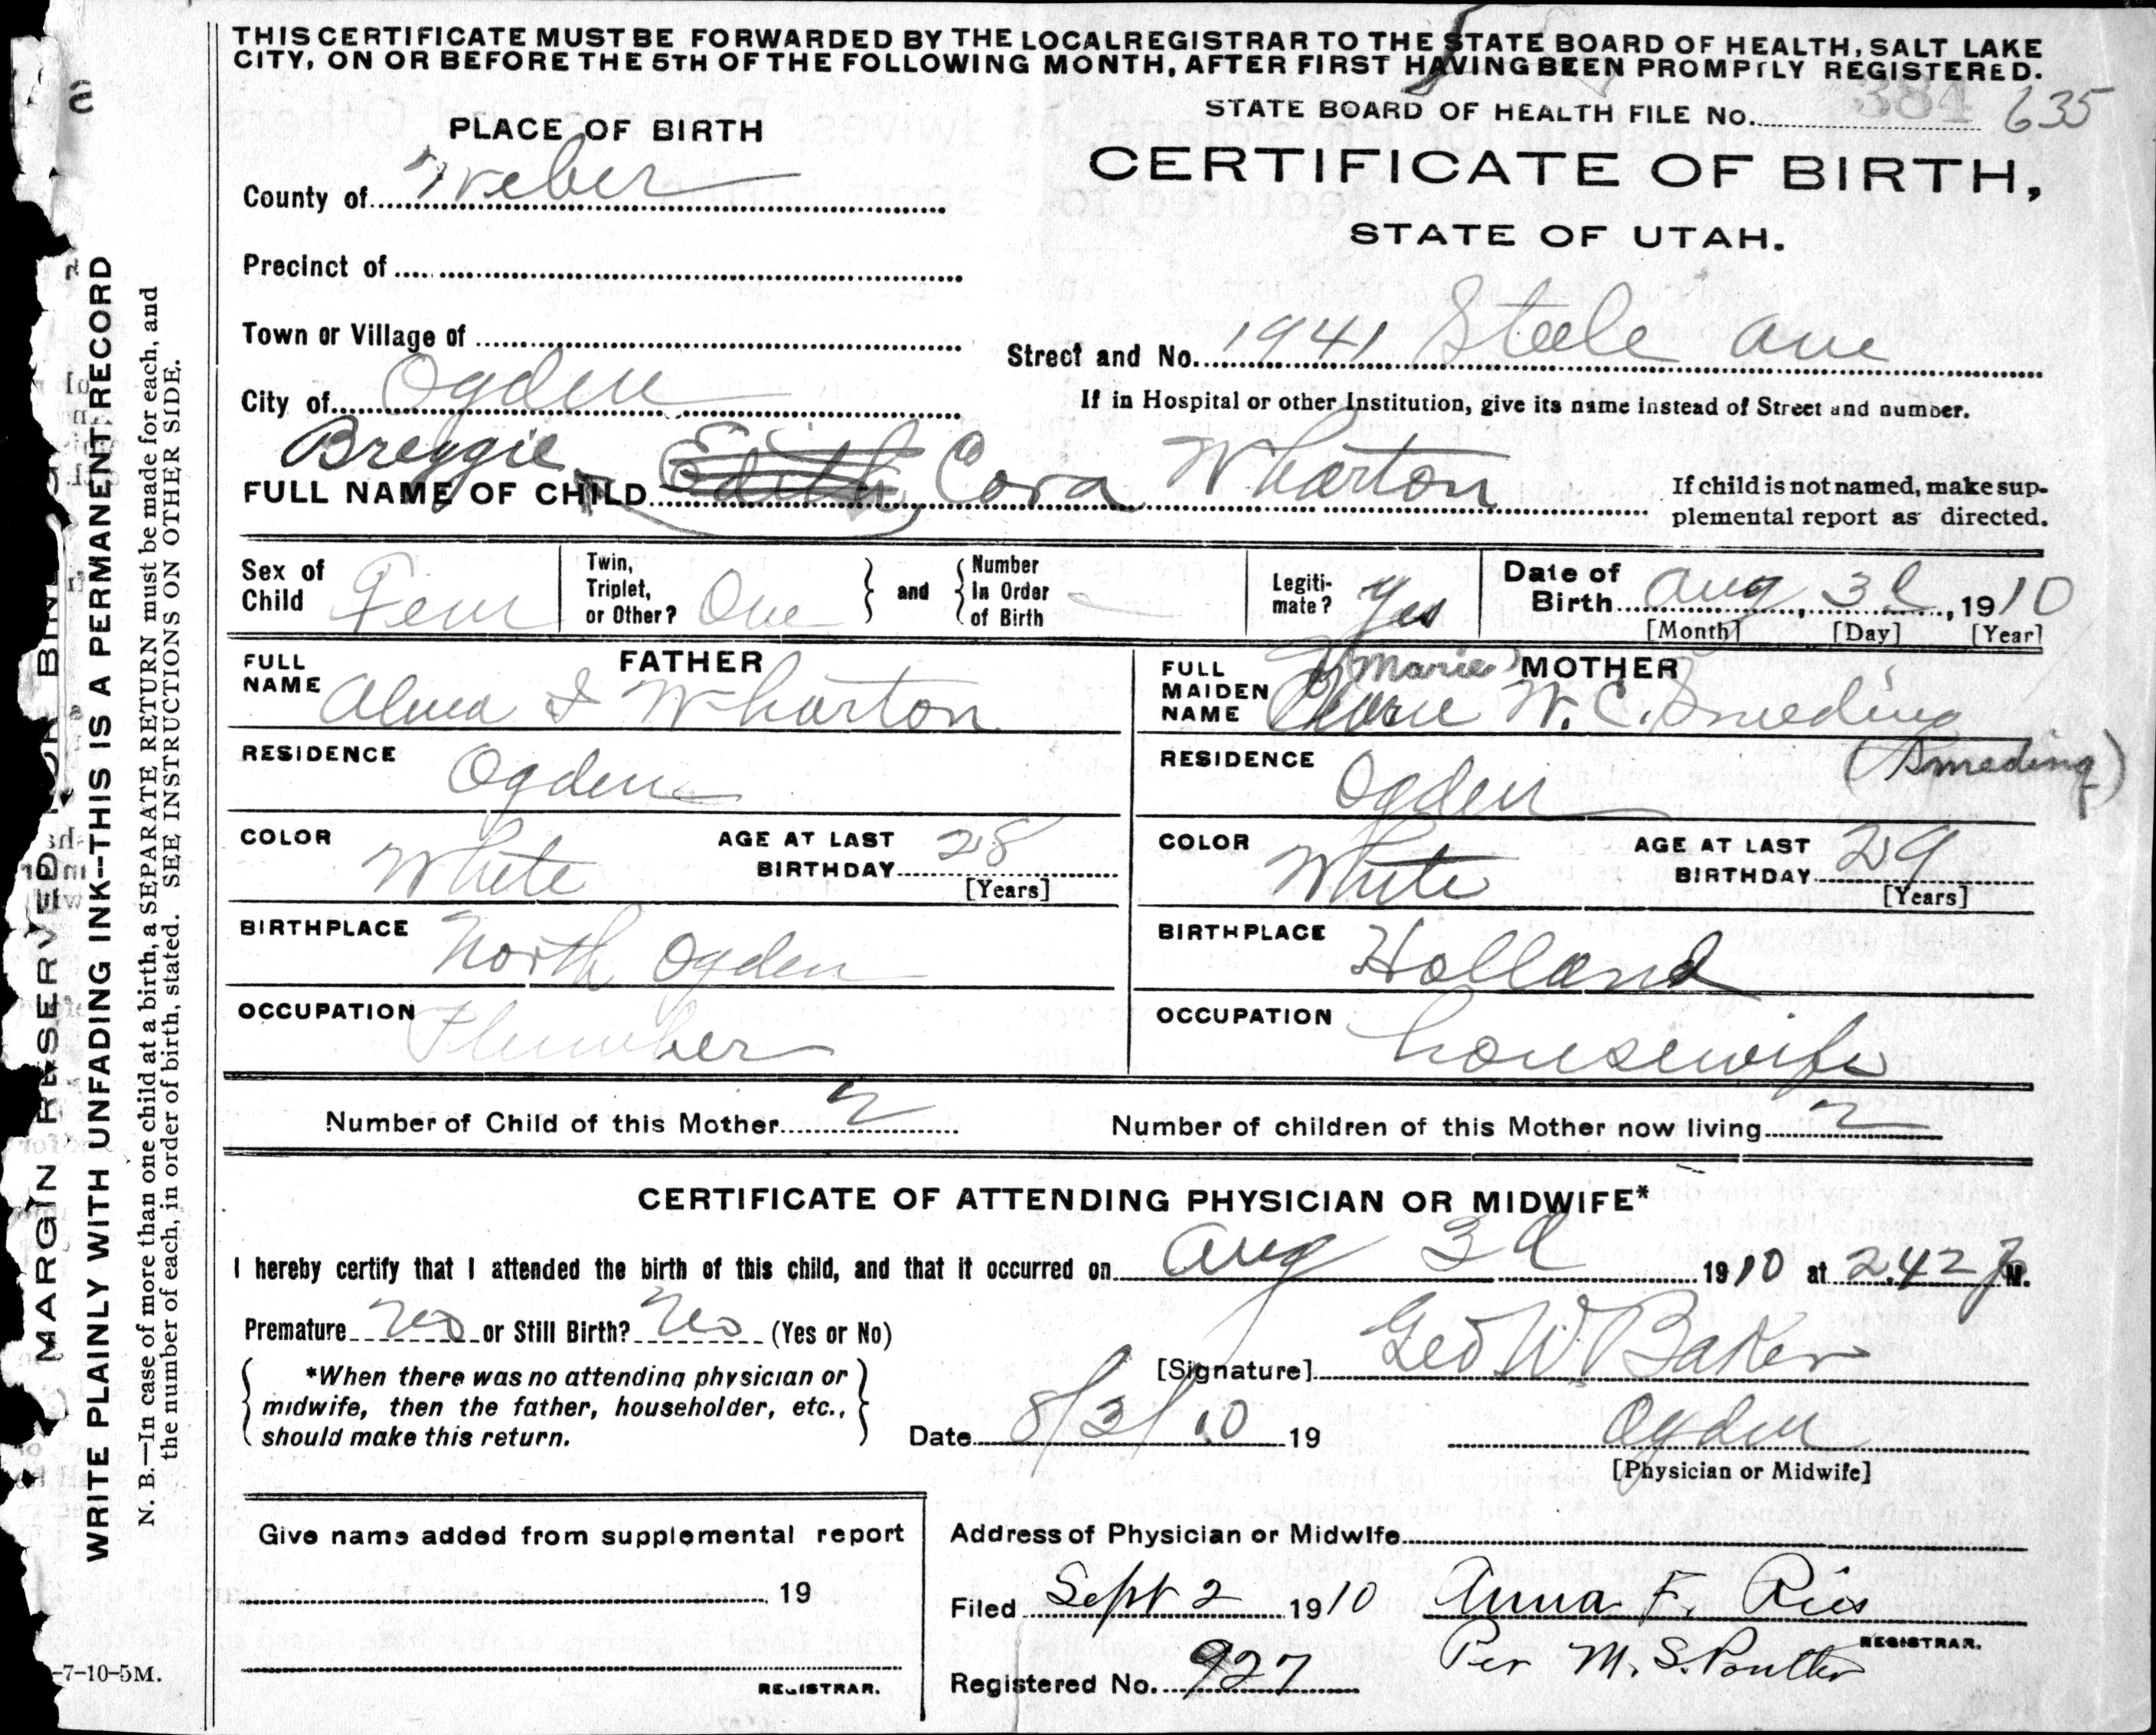 THIS CERTIFICATE MUST BE FORWARDED BY THE LOCAL REGISTRAR TO THE STATE BOARD OF HEALTH, SALT LAKE
CITY, ON OR BEFORE THE 5TH OF THE FOLLOWING MONTH, AFTER FIRST HAVING BEEN PROMPTLY REGISTERED.
STATE BOARD OF HEALTH FILE No. 384 635
PLACE OF BIRTH
CERTIFICATE OF BIRTH,
STATE OF UTAH.
County of Weber
Precinct of
Town or Village of
Street and No. 1941 Steele Ave
City of Ogden
If in Hospital or other Institution, give its name instead of Street and number.
Breggie
FULL NAME OF CHILD Edith Cora Wharton
If child is not named, make sup-
plemental report as directed.
Sex of Child Fem
Twin, Triplet, or Other? One
and Number In Order of Birth —
Legiti-mate? Yes
Date of Birth Aug 3d, 1910
[Month] [Day] [Year]
FATHER
FULL NAME Alma I Wharton
RESIDENCE Ogden
COLOR White
AGE AT LAST BIRTHDAY 28
[Years]
BIRTHPLACE North Ogden
OCCUPATION Plumber
MOTHER
Marie
FULL MAIDEN NAME W. C. Smeding
(Smeding)
RESIDENCE Ogden
COLOR White
AGE AT LAST BIRTHDAY 29
[Years]
BIRTHPLACE Holland
OCCUPATION housewife
Number of Child of this Mother 2
Number of children of this Mother now living 2
CERTIFICATE OF ATTENDING PHYSICIAN OR MIDWIFE*
I hereby certify that I attended the birth of this child, and that it occurred on Aug 3d 1910 at 2.42 P M.
Premature No or Still Birth? No (Yes or No)
[Signature] Geo W Baker
*When there was no attending physician or
midwife, then the father, householder, etc.,
should make this return.
Date 8/3/10 19
Ogden
[Physician or Midwife]
Give name added from supplemental report
19
REGISTRAR.
Address of Physician or Midwife
Filed Sept 2 1910 Anna F. Ries
REGISTRAR.
Per M. S. Poulter
Registered No. 927
MARGIN RESERVED FOR BIN
WRITE PLAINLY WITH UNFADING INK—THIS IS A PERMANENT RECORD
N. B.—In case of more than one child at a birth, a SEPARATE RETURN must be made for each, and
the number of each, in order of birth, stated. SEE INSTRUCTIONS ON OTHER SIDE.
-7-10-5M.